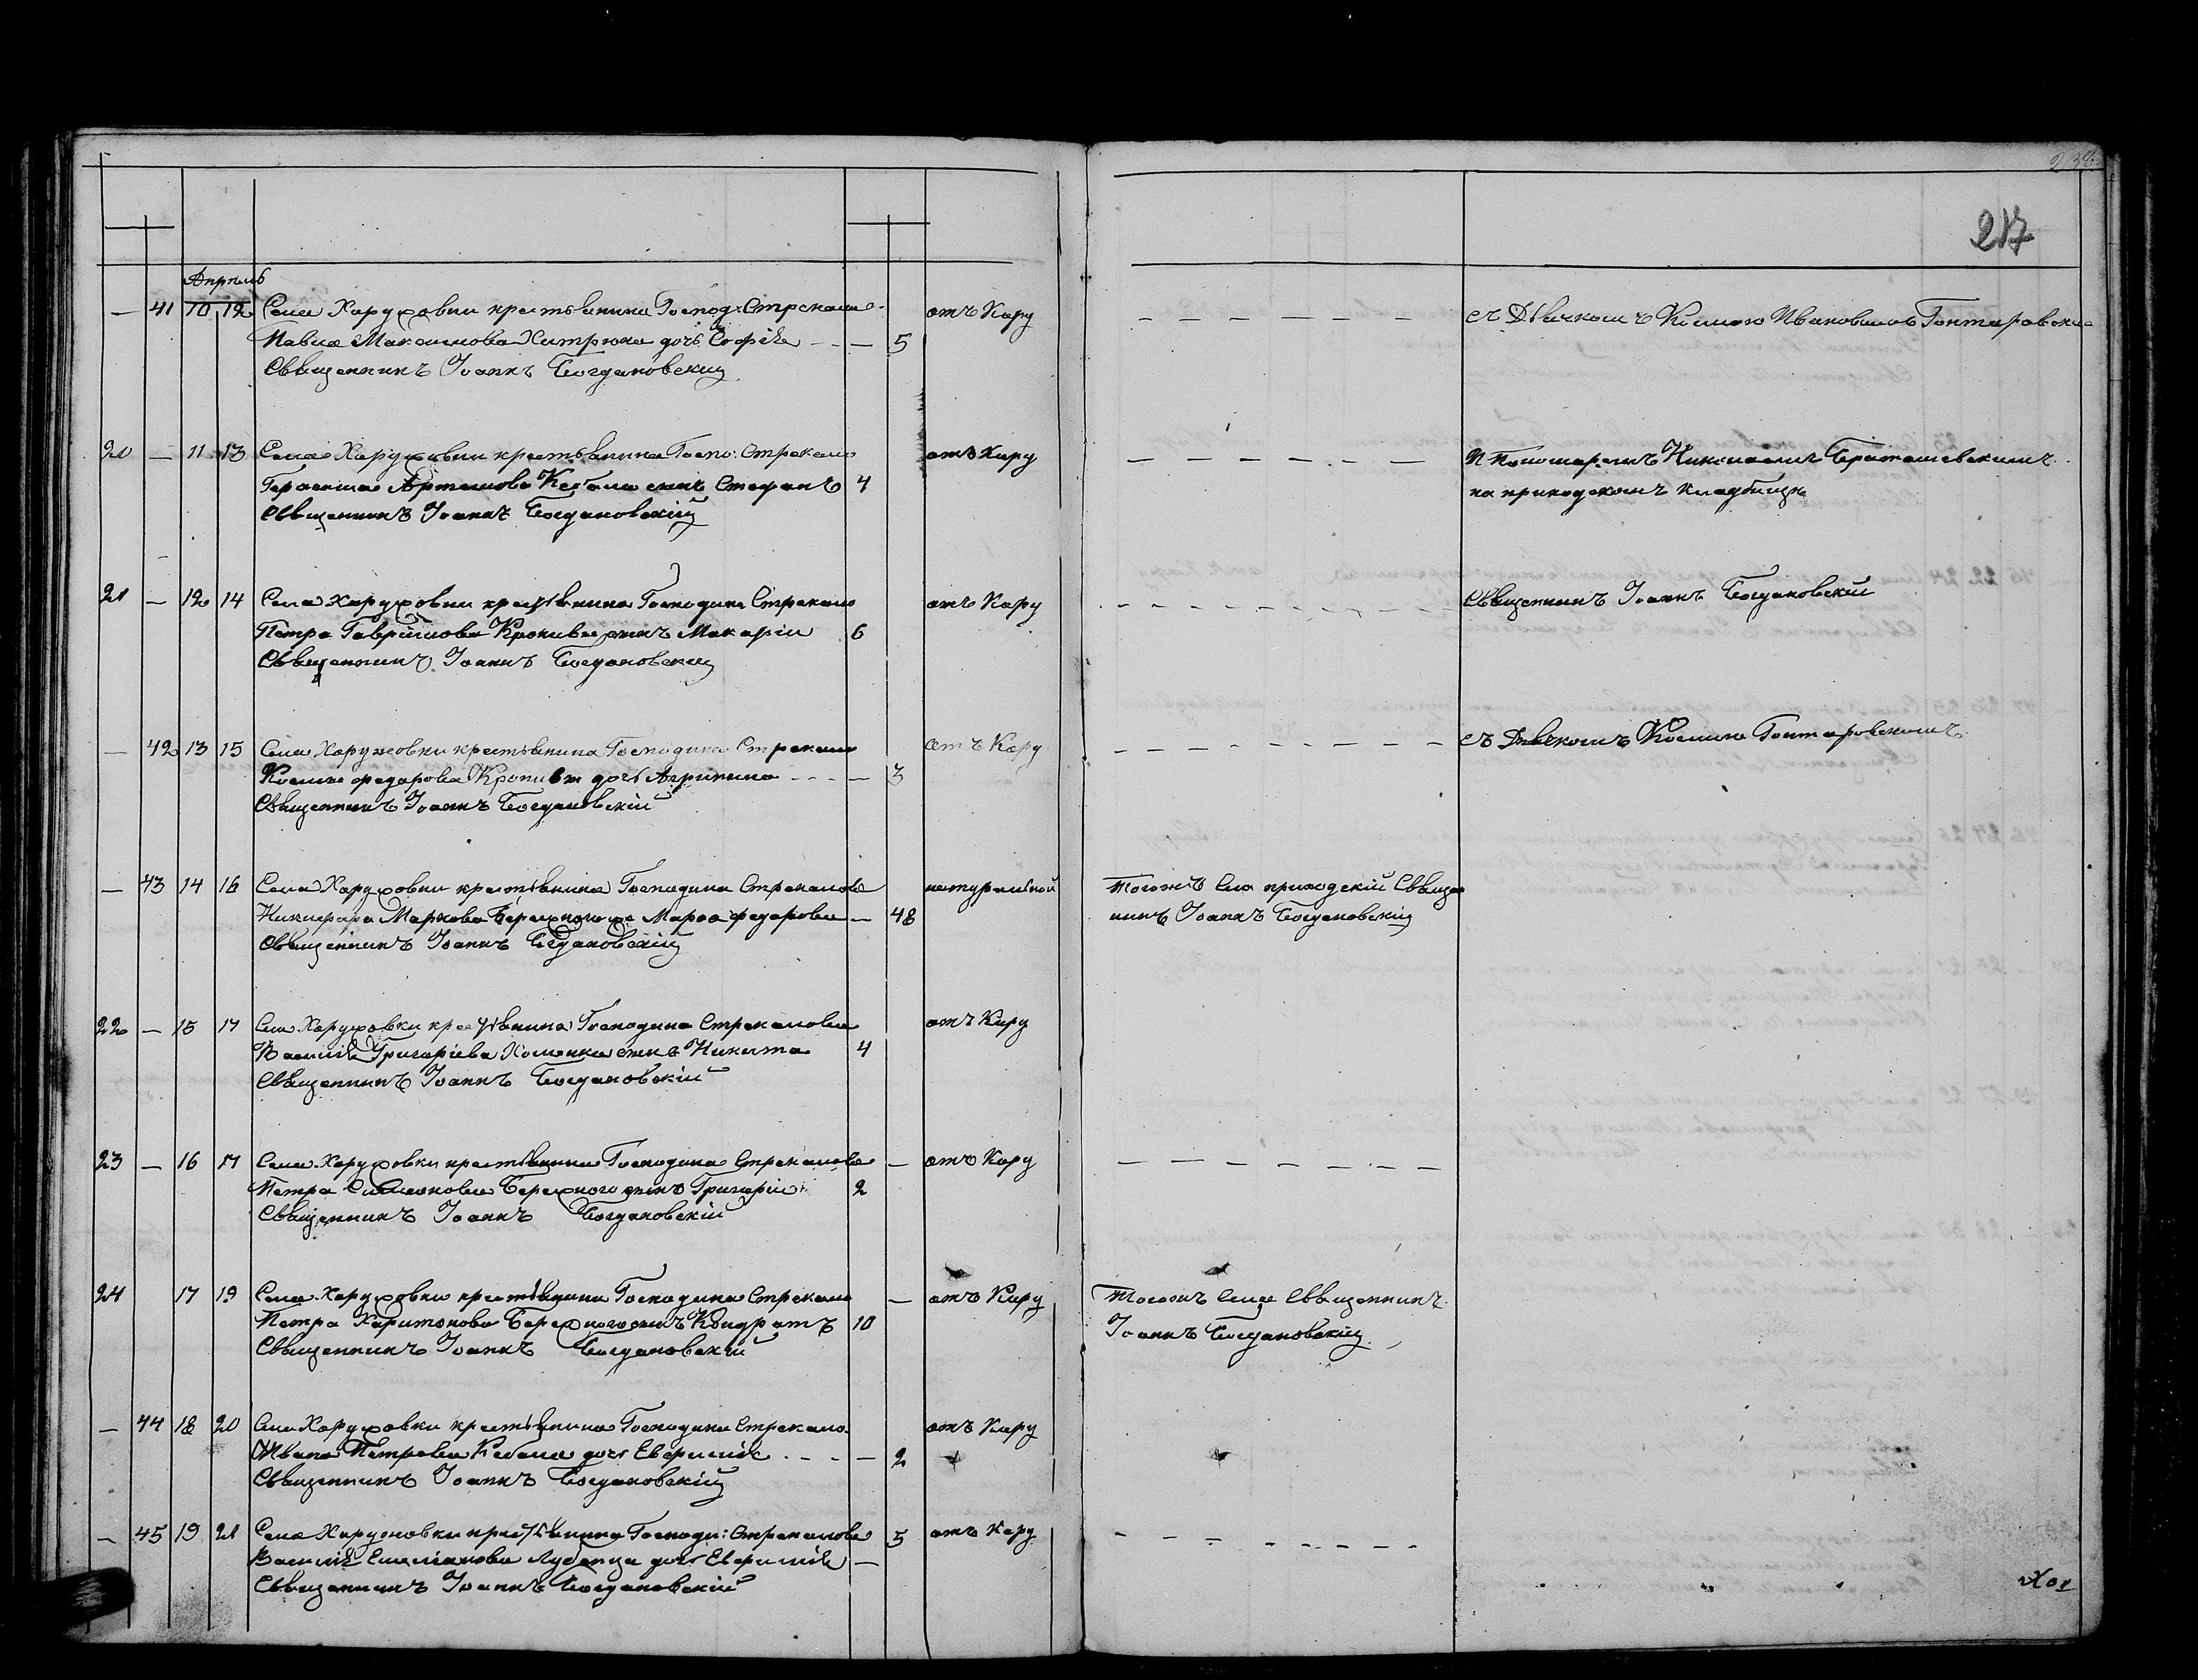 238
217
Апрѣль
— 41 10 12 Села Харуховки крестьянина Господ: Стрекало- отъ Кору — — — — — — съ Дьячкомъ Космою Ивановымъ Гонтаровским
Павла Максимова Хитрюка дочь Софѣя — — 5
Священникъ Іоаннъ Богдановскій
20 — 11 13 Села Харуховки крестьянина Госпо: Стрекало отъ Кору — — — — — — И Пономаремъ Николаемъ Браташевскимъ
Герасима Артемова Кебала сынъ Стефанъ 4 на приходскомъ кладбищѣ
Священникъ Іоаннъ Богдановскій
21 — 12 14 Села Харуховки крестьянина Господина Стрекало отъ Кору — — — — — — Священникъ Іоаннъ Богдановскій
Петра Гавріилова Кропивы сынъ Макарій 6
Священникъ Іоаннъ Богдановскій
— 42 13 15 Села Харуховки крестьянина Господина Стрекало отъ Кору — — — — — — съ Дьячкомъ Космою Гонтаровскимъ
Космы Федорова Кропивы дочь Агрипина — — 3
Священникъ Іоаннъ Богдановскій
— 43 14 16 Села Харуховки крестьянина Господина Стрекалова натуральной Тогожъ села приходскій Свяще
Никифора Маркова Бережного Марфа Федорова — 48 никъ Іоаннъ Богдановскій
Священникъ Іоаннъ Богдановскій
22 — 15 17 Села Харуховки крестьянина Господина Стрекалова отъ Кору
Василія Григоріева Хоменка сынъ Никита 4
Священникъ Іоаннъ Богдановскій
23 — 16 17 Села Харуховки крестьянина Господина Стрекалова — отъ Кору — — — — — —
Петра Симеонова Бережного сынъ Григорій 2
Священникъ Іоаннъ Богдановскій
24 17 19 Села Харуховки крестьянина Господина Стрекало — отъ Кору Тогожъ села Священникъ
Петра Харитонова Бережного сынъ Кондратъ 10 Іоаннъ Богдановскій
Священникъ Іоаннъ Богдановскій
— 44 18 20 Села Харуховки крестьянина Господина Стрекало отъ Кору
Ивана Петрова Кебала дочь Евфимія — — 2
Священникъ Іоаннъ Богдановскій
— 45 19 21 Села Харуховки крестьянина Господи: Стрекалова 5 отъ Кору — — — — — —
Василія Емеліанова дочь Евфимія —
Священникъ Іоаннъ Богдановскій